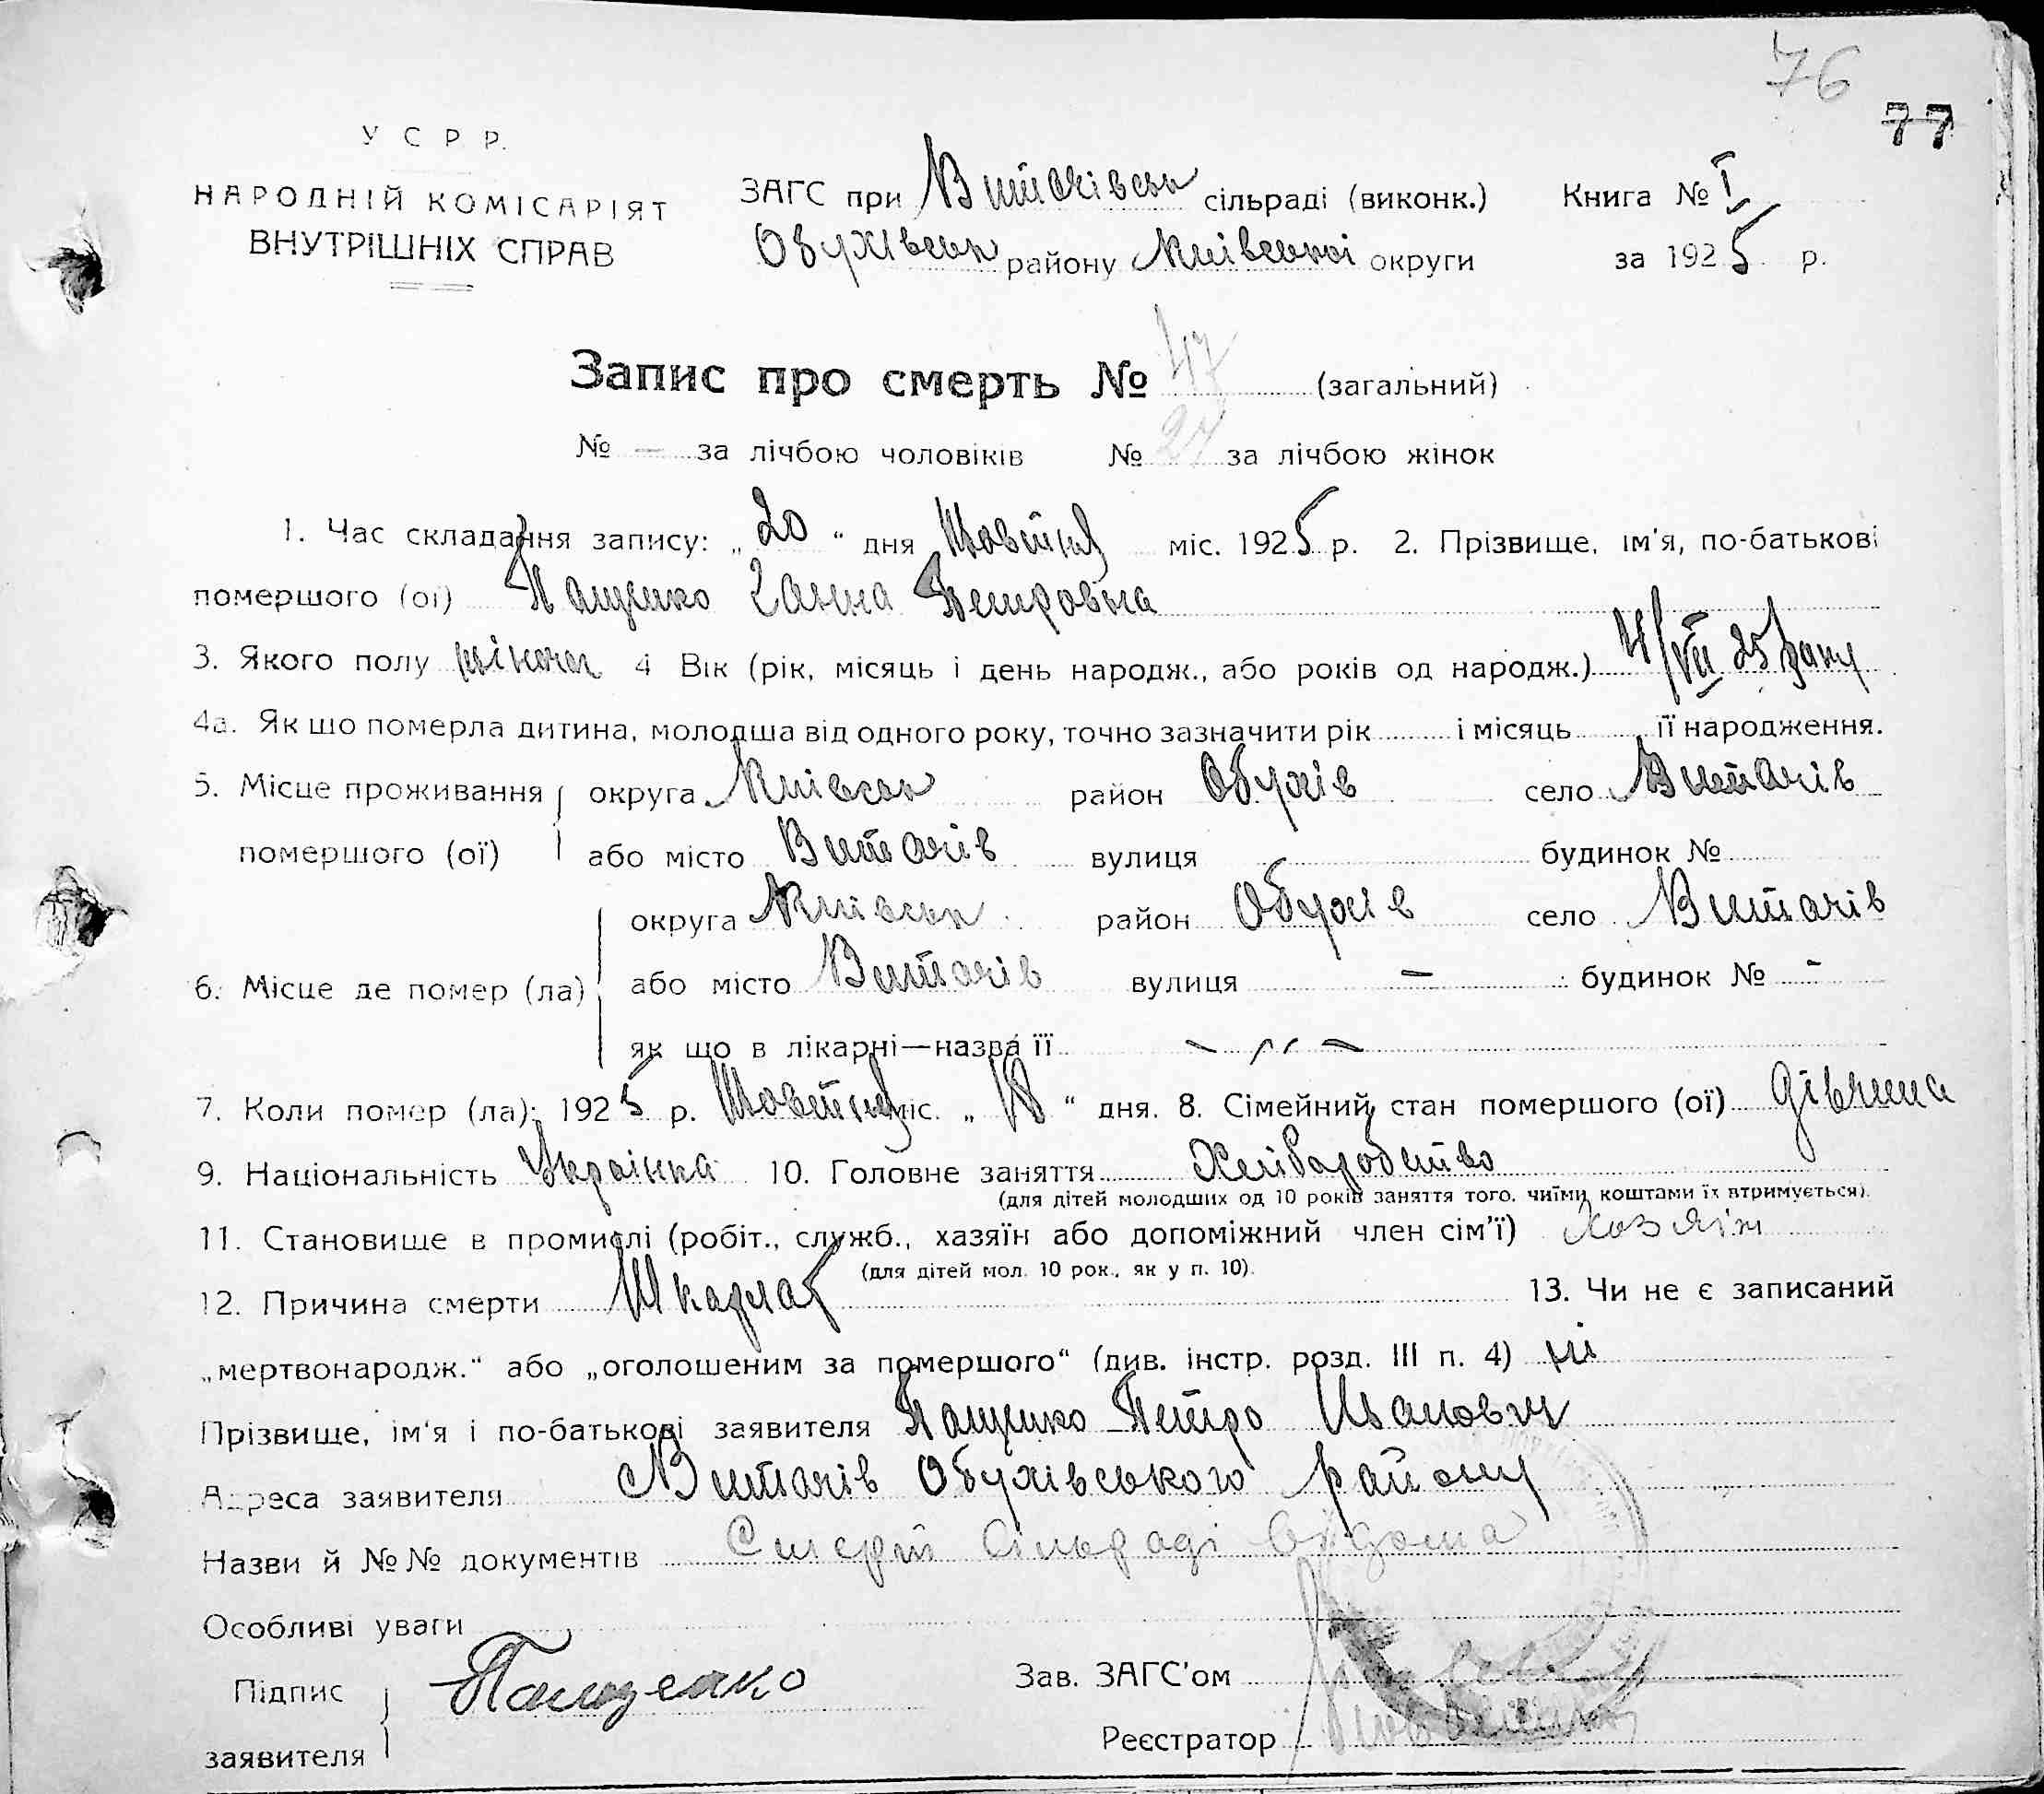 76
77
У С Р Р.
НАРОДНІЙ КОМІСАРІЯТ
ВНУТРІШНІХ СПРАВ
ЗАГС при Витачівськ сільраді (виконк.) Книга № I
Обухівськ району Київської округи за 1925 р.
Запис про смерть № 47 (загальний)
№ — за лічбою чоловіків № 27 за лічбою жінок
1. Час складання запису: „20“ дня Жовтня міс. 1925 р. 2. Прізвище, ім'я, по-батькові
помершого (ої) Пащенко Ганна Петровна
3. Якого полу жіноча 4 Вік (рік, місяць і день народж., або років од народж.) 4/VII 25 року
4а. Як що померла дитина, молодша від одного року, точно зазначити рік і місяць її народження.
5. Місце проживання помершого (ої) округа Київськ район Обухів село Витачів
або місто Витачів вулиця будинок №
6. Місце де помер (ла) округа Київськ район Обухів село Витачів
або місто Витачів вулиця — будинок № -
як що в лікарні—назва її — „ —
7. Коли помер (ла): 1925 р. Жовтня міс. „18“ дня. 8. Сімейний стан помершого (ої) дівчина
9. Національність Українка 10. Головне заняття Хліборобство
(для дітей молодших од 10 років заняття того, чиїми коштами їх втримується).
11. Становище в промислі (робіт., служб., хазяїн або допоміжний член сім'ї) Хозяїн
(для дітей мол. 10 рок., як у п. 10).
12. Причина смерти Шкарлат 13. Чи не є записаний
„мертвонародж.“ або „оголошеним за помершого“ (див. інстр. розд. III п. 4) ні
Прізвище, ім'я і по-батькові заявителя Пащенко Петро Иванович
Адреса заявителя Витачів Обухівського району
Назви й №№ документів Смерть Сільраді відома
Особливі уваги
Підпис заявителя Пащенко
Зав. ЗАГС'ом
Реєстратор